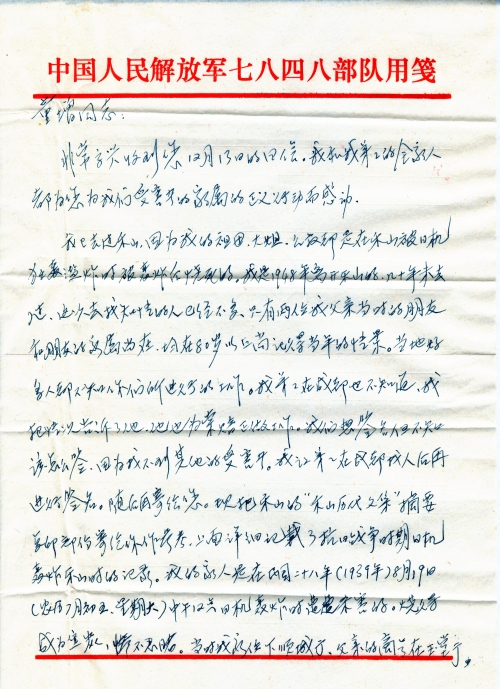 中国人民解放军七八四八部队用笺
童增同志：
非常高兴收到您12月13日的回信。我和我弟弟的全家人
都为您为我们受害者家属的正义行动而感动。
我已去过乐山，因为我的祖母、大姐、公叔都是在乐山被日机
狂轰滥炸时被轰炸后烧死的。我是1948年离开乐山的，几十年未去
过，这次去找知情的人已经不多，只有两位我父亲当时的朋友
和朋友的家属尚在，均在80岁以上尚记得当年的情景。当地好
多人都不知你们所进行的工作。我弟弟在成都也不知道，我
把情况告诉了他，他也为索赔正做工作。我们想签名但不知
该怎么签，因为找不到其他的受害者，我让弟弟在成都找人后再
进行签名。随后再寄给您。现把乐山的“乐山历代文集”摘要
复印部份寄给你作参考，上面详细记载了抗日战争时期日机
轰炸乐山时的记录。我的家人是在民国二十八年（1939年）8月19日
（农历7月初五、星期六）中午12点日机轰炸时遭遇不害的。烧得
成为焦炭，惨不忍睹。当时我家住下顺城街，父亲的商号在玉堂街，